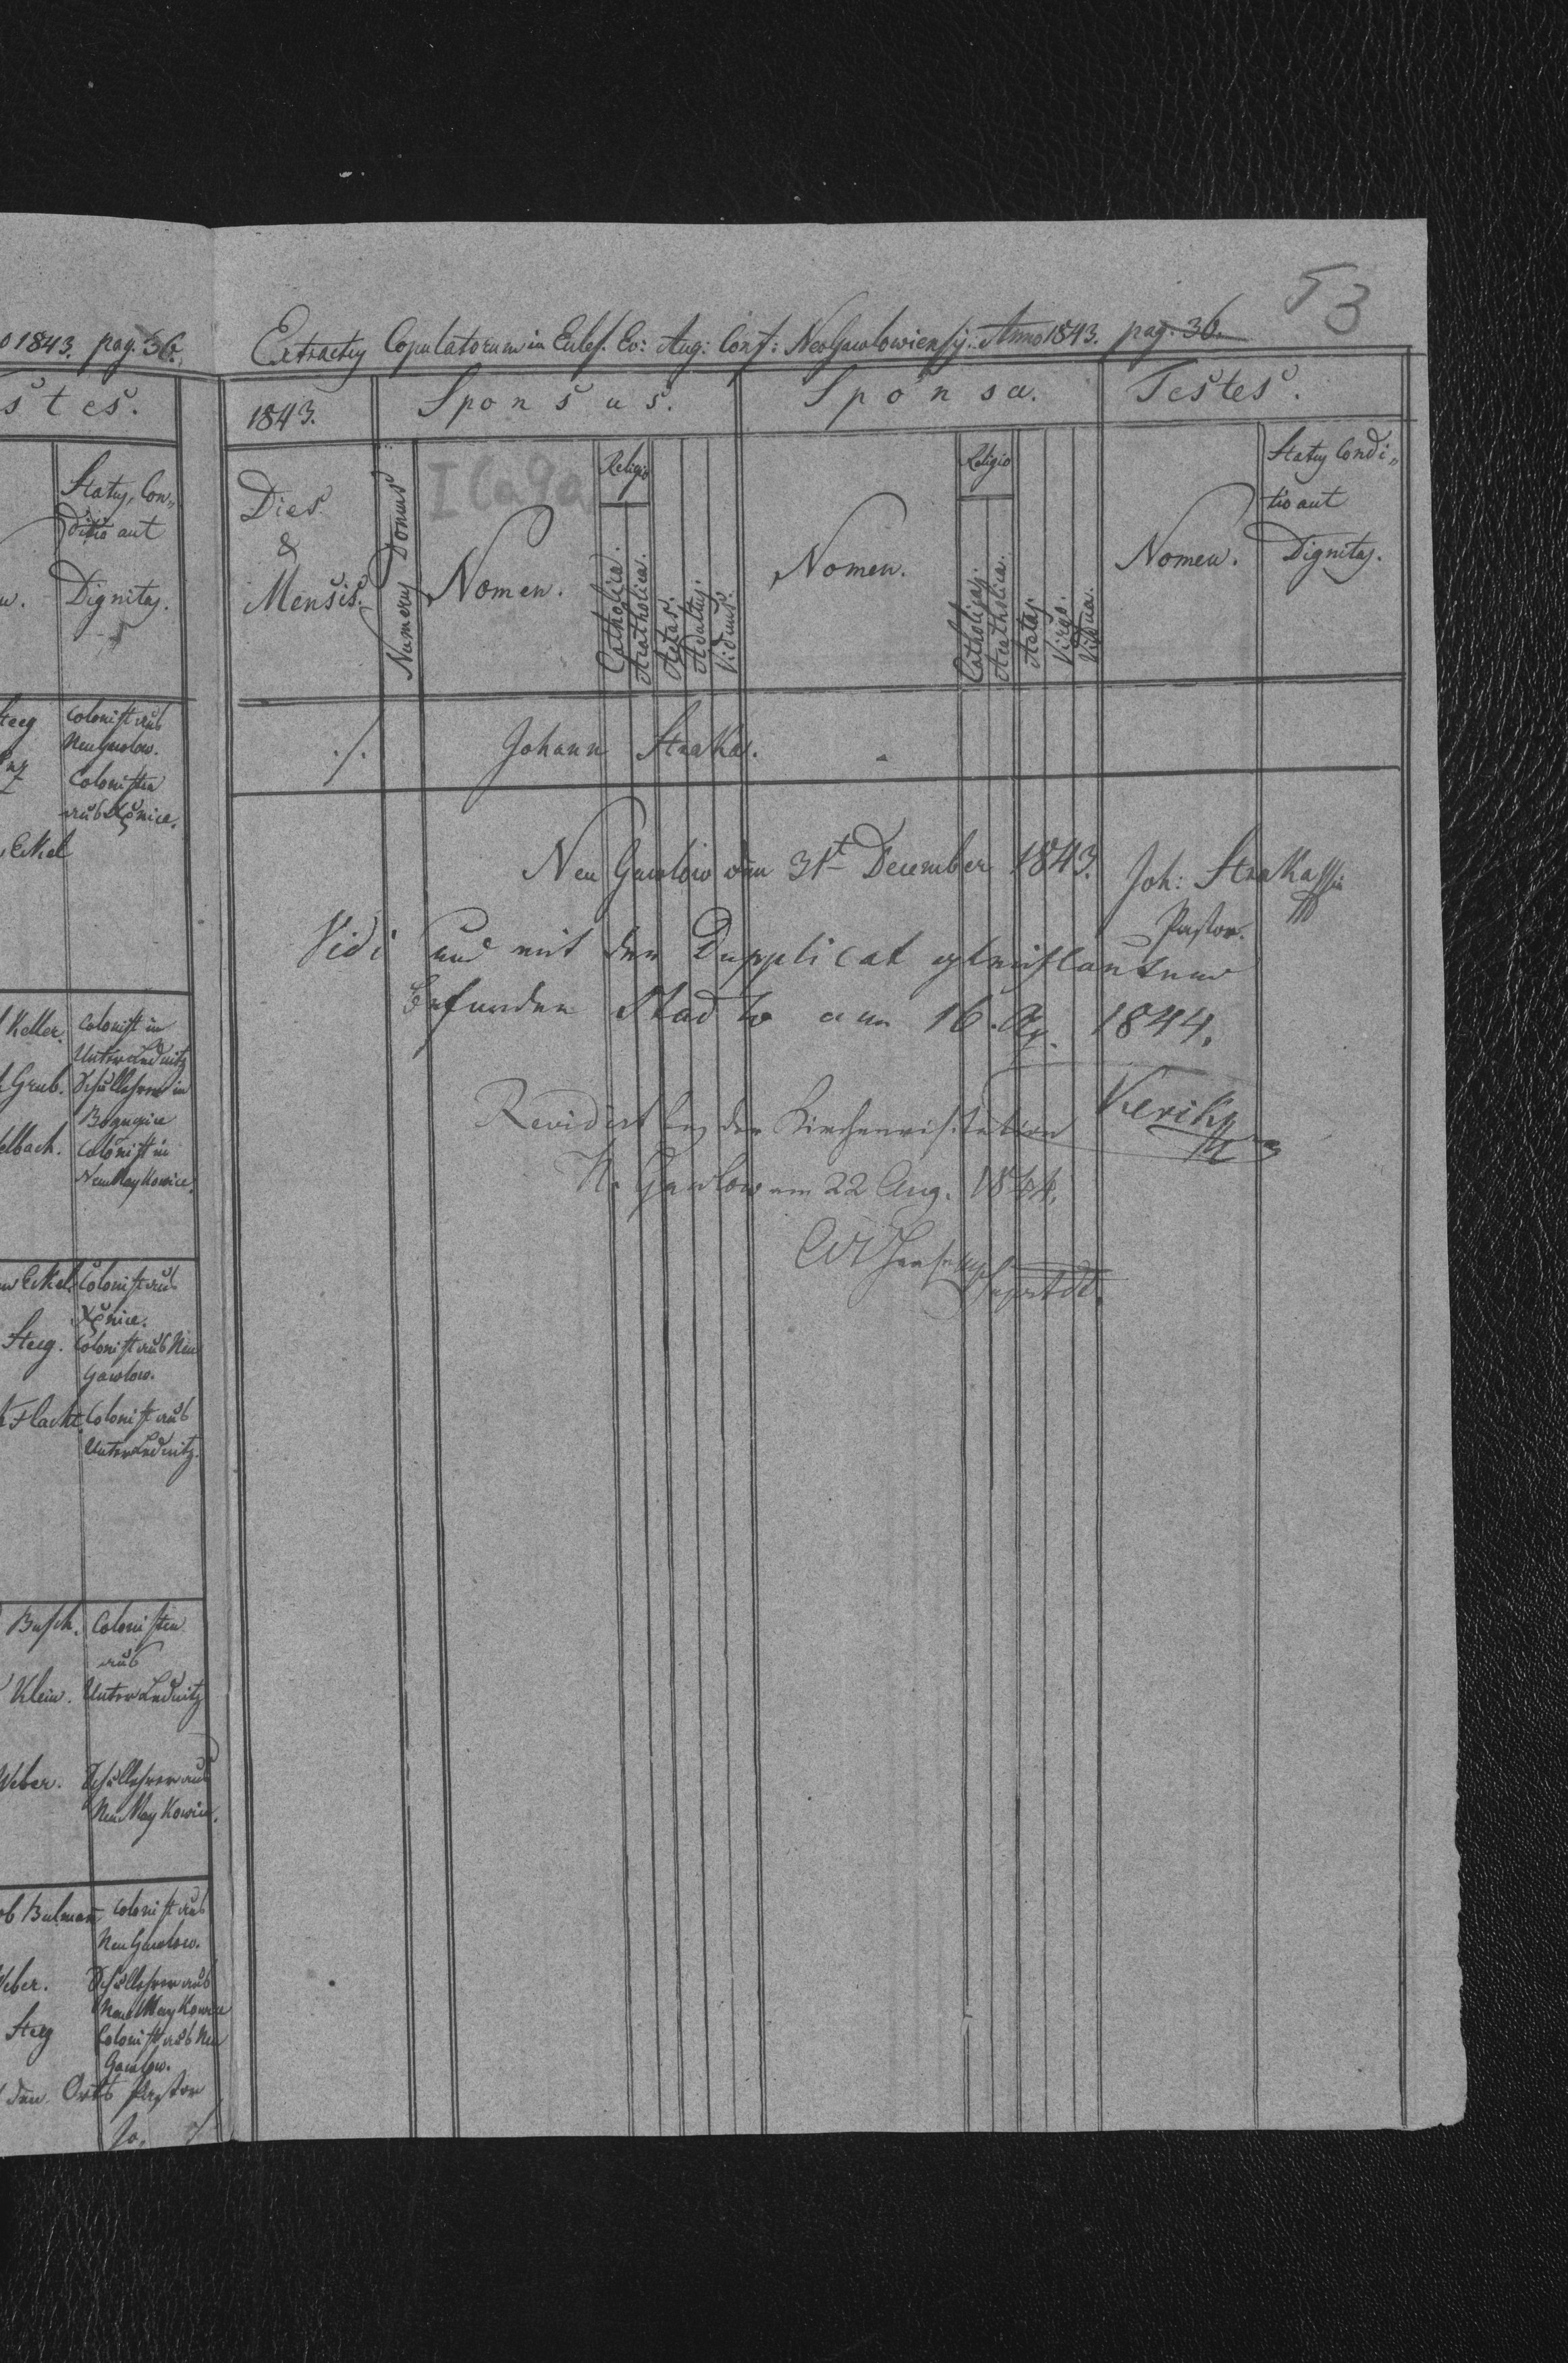 53
o 1843. pag. 36.
stes.
Status, Con„
ditio aut
Dignitas.
Steeg Colonist aus
Neu Gawlow.
Colonisten
aus Xęnice.
Eckel
Keller. Colonist in
Unter Lednitz
Grub. Schullehrer in
elbach. Colonist in
Neu Maykowice.
Eckel Colonist aus
Xęnice.
Steeg. Colonist aus Neu
Gawlow.
Flacht. Colonist aus
Unter Lednitz.
Busch. Colonisten
aus
Klein. Unter Lednitz
Weber. Schullehrer aus
Neu Maykowice.
ob Bulman Colonist aus
Neu Gawlow.
Weber. Schullehrer aus
Neu Maykowice
Steeg Colonist aus Neu
Gawlow.
den Orts Pastor
Extractus Copulatorum in Eccles. Ev: Aug: Conf: NeoGawlowiensis. Anno 1843. pag. 36.
1843. Sponsus. Sponsa. Testes.
Dies
&
Mensis.
Numerus Domus
Nomen.
Religio
Catholica.
Acatholica.
Aetas.
Adultus.
Viduus.
Nomen.
Religio
Catholica.
Acatholica.
Aetas.
Virgo.
Vidua.
Nomen.
Status Condi„
tio aut
Dignitas.
./. Johann Straka.
Neu Gawlow den 31t December 1843. Joh: Straka
Pastor.
Vidi und mit dem Dupplicat gleichlautend
Befunden Stadło am 16. Ag. 1844.
Revidirt bey der Kirchenvisitation
N. Gawlow am 22 Aug. 1844.